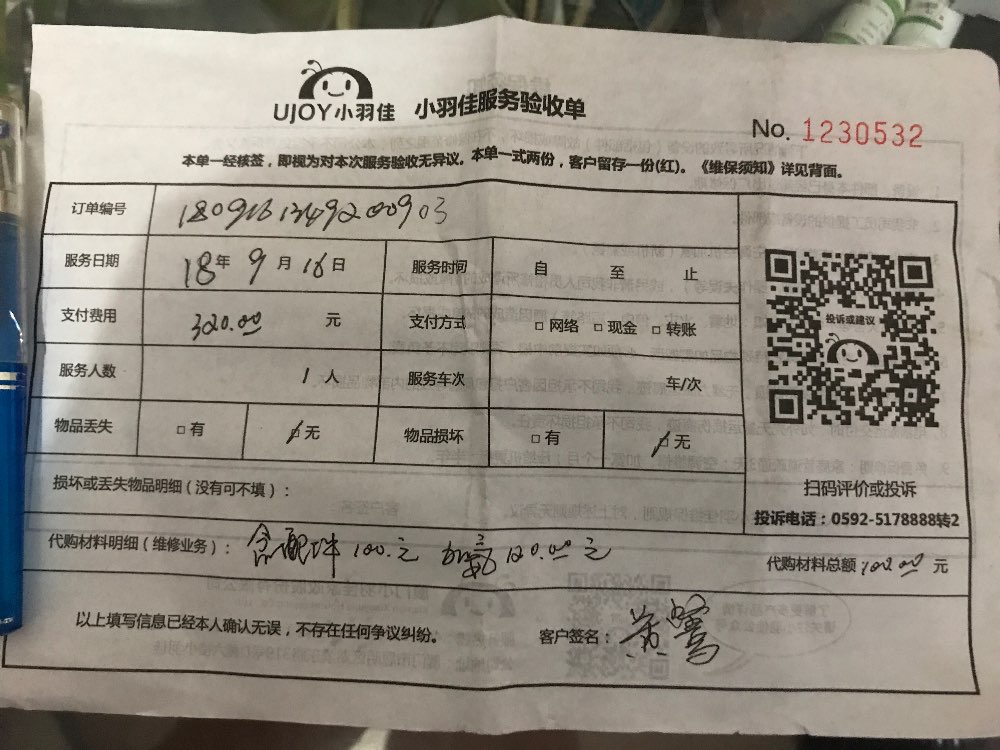 UJOY小羽佳 小羽佳服务验收单
No. 1230532
本单一经核签，即视为对本次服务验收无异议。本单一式两份，客户留存一份(红)。《维保须知》详见背面。
订单编号
服务日期 18年9月16日 服务时间 自 至 止
支付费用 320.00 元 支付方式 □网络 □现金 □转账
服务人数 1人 服务车次 车/次
物品丢失 □有 □无 物品损坏 □有 □无
投诉或建议
扫码评价或投诉
投诉电话：0592-5178888转2
损坏或丢失物品明细（没有可不填）：
代购材料明细（维修业务）：含配件100.元 加氟120.00元 代购材料总额 100.00 元
以上填写信息已经本人确认无误，不存在任何争议纠纷。 客户签名：